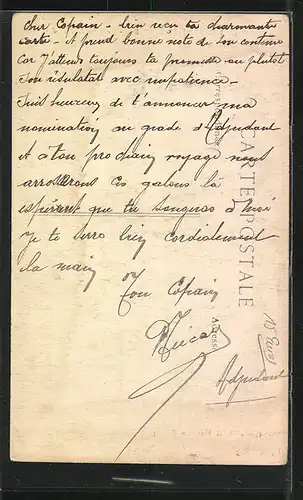 Cher Copain - bien reçu ta charmante
carte - et prend bonne note de son contenu
car j'attend toujours ta promesse au plutot
son résultat avec impatience -
Suis heureux de t'annoncer ma
nomination au grade d'Adjudant
et à ton prochain voyage nous
arroserons ces galons là
espérant que tu songeras à moi
Je te serre bien cordialement
la main
Ton Copain
Adjudant
CARTE POSTALE
Correspondance
Adresse
15 Euros